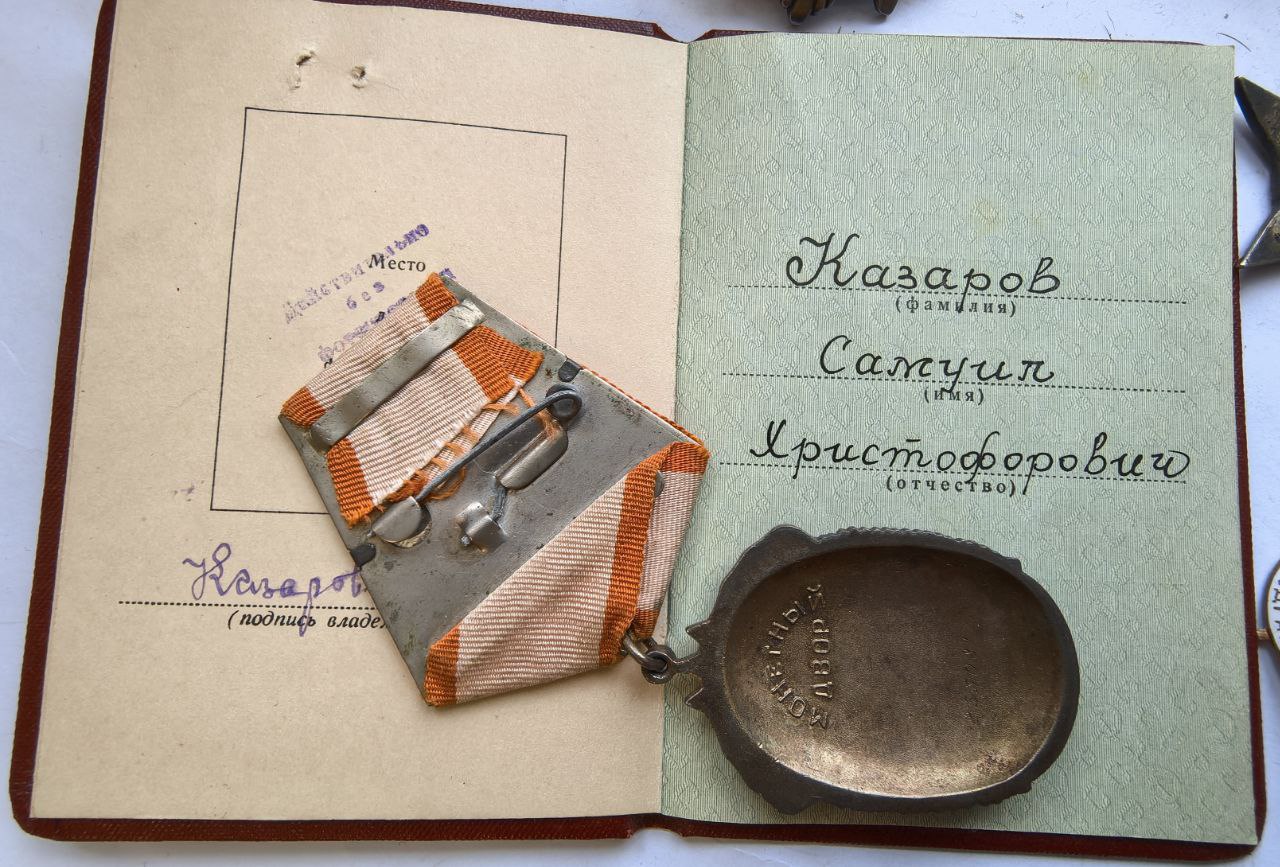 Действительно
без
Место
Казаров
(подпись владе
Казаров
(фамилия)
Самуил
(имя)
Христофорович
(отчество)
МОНЕТНЫЙ
ДВОР